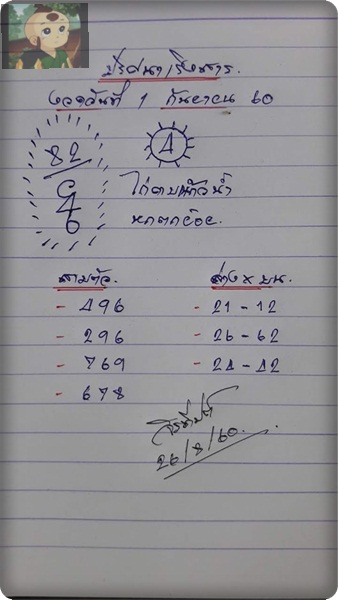 ปริศนาเชิงเขาร.
งวดวันที่ 1 กันยายน 60
82
4
6
4
ไก่ตบ น้ำ
หกตกย้อย.
สามตัว.
ล่าง x บน.
- 496
- 21 - 12
- 296
- 26 - 62
- 769
- 24 - 42
- 678
26/8/60.